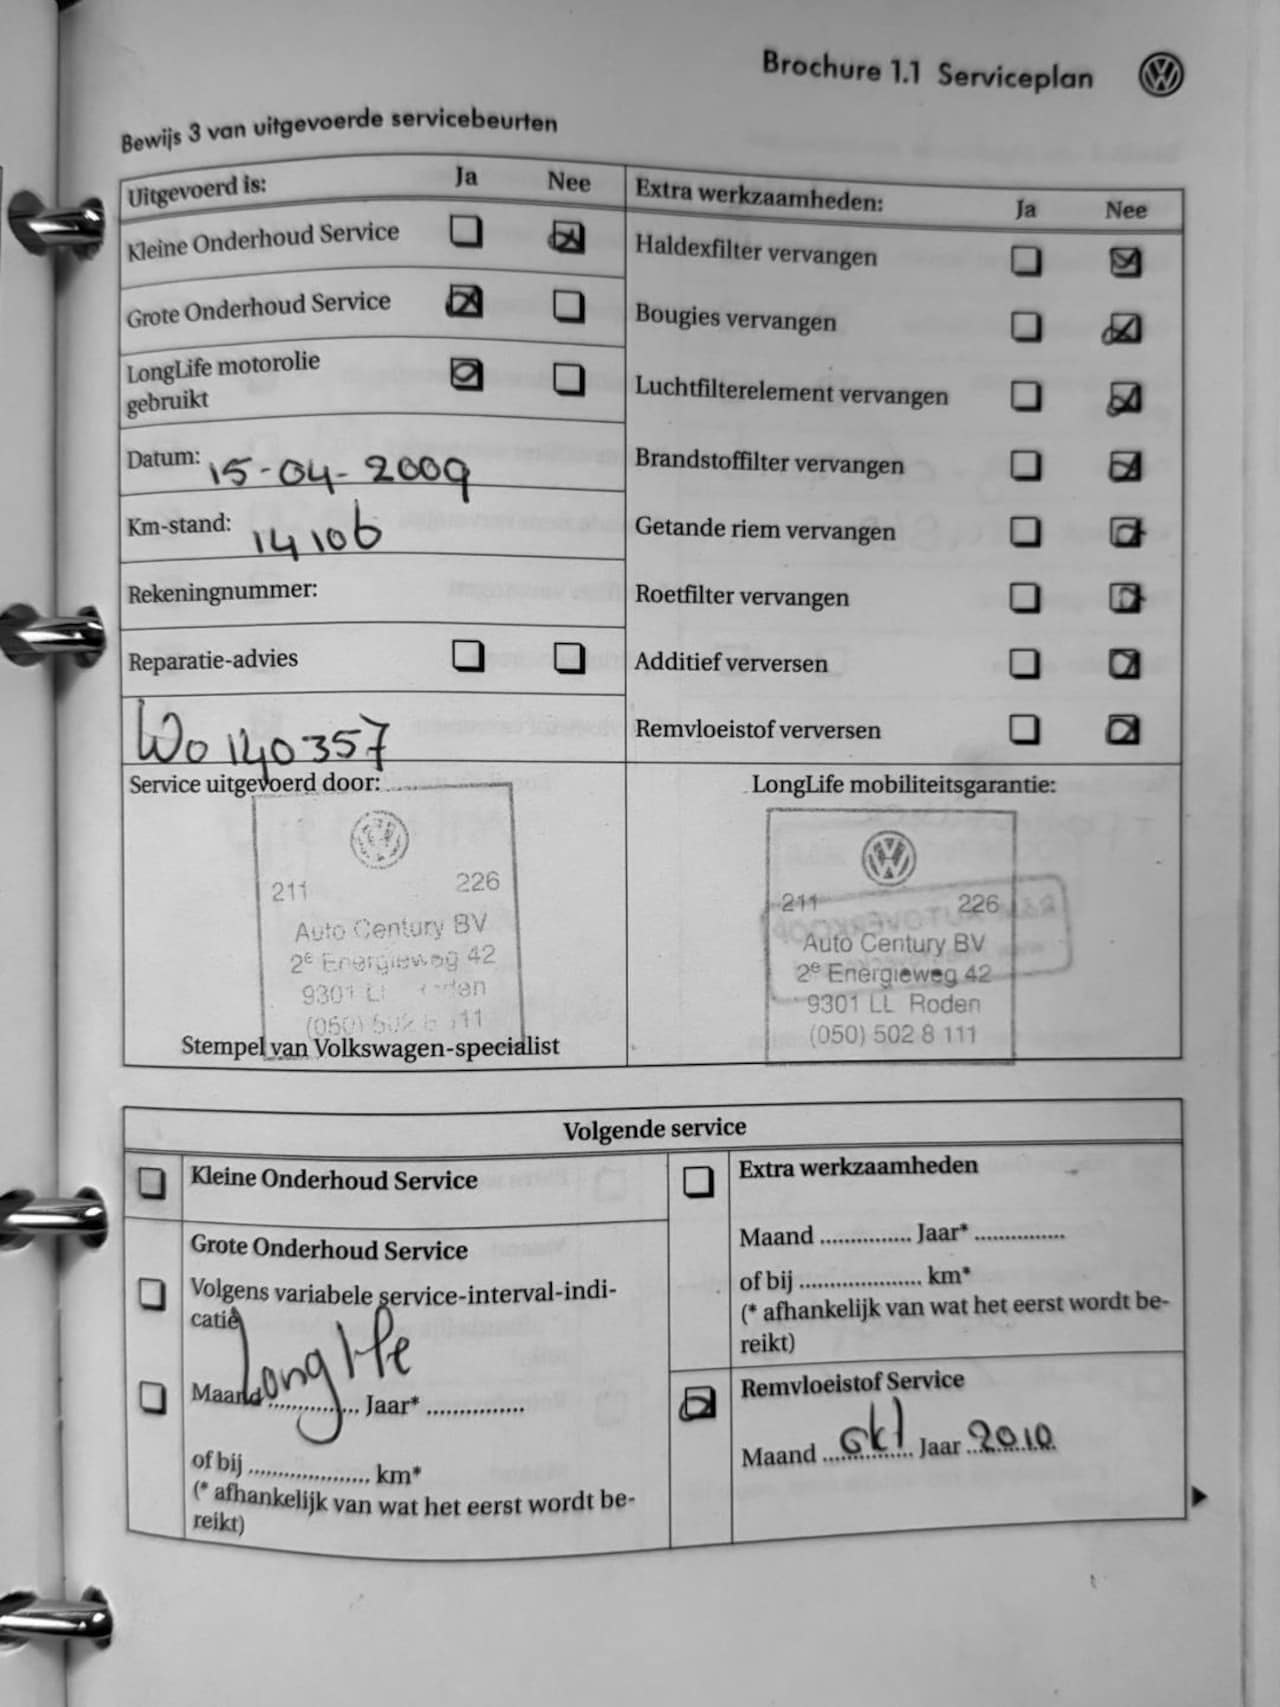 Brochure 1.1 Serviceplan
Bewijs 3 van uitgevoerde servicebeurten
Uitgevoerd is: Ja Nee
Kleine Onderhoud Service
Grote Onderhoud Service
LongLife motorolie
gebruikt
Datum: 15-04-2009
Km-stand: 14106
Rekeningnummer:
Reparatie-advies
Wo 140357
Extra werkzaamheden: Ja Nee
Haldexfilter vervangen
Bougies vervangen
Luchtfilterelement vervangen
Brandstoffilter vervangen
Getande riem vervangen
Roetfilter vervangen
Additief verversen
Remvloeistof verversen
Service uitgevoerd door:
211 226
Auto Century BV
2e Energieweg 42
9301 LL
(050) 502 8 111
Stempel van Volkswagen-specialist
LongLife mobiliteitsgarantie:
211 226
Auto Century BV
2e Energieweg 42
9301 LL Roden
(050) 502 8 111
Volgende service
Kleine Onderhoud Service
Grote Onderhoud Service
Volgens variabele service-interval-indi-
catie
longlife
Maand ............... Jaar* ...............
of bij .................... km*
(* afhankelijk van wat het eerst wordt be-
reikt)
Extra werkzaamheden
Maand ............... Jaar* ...............
of bij .................... km*
(* afhankelijk van wat het eerst wordt be-
reikt)
Remvloeistof Service
Maand okt Jaar 2010